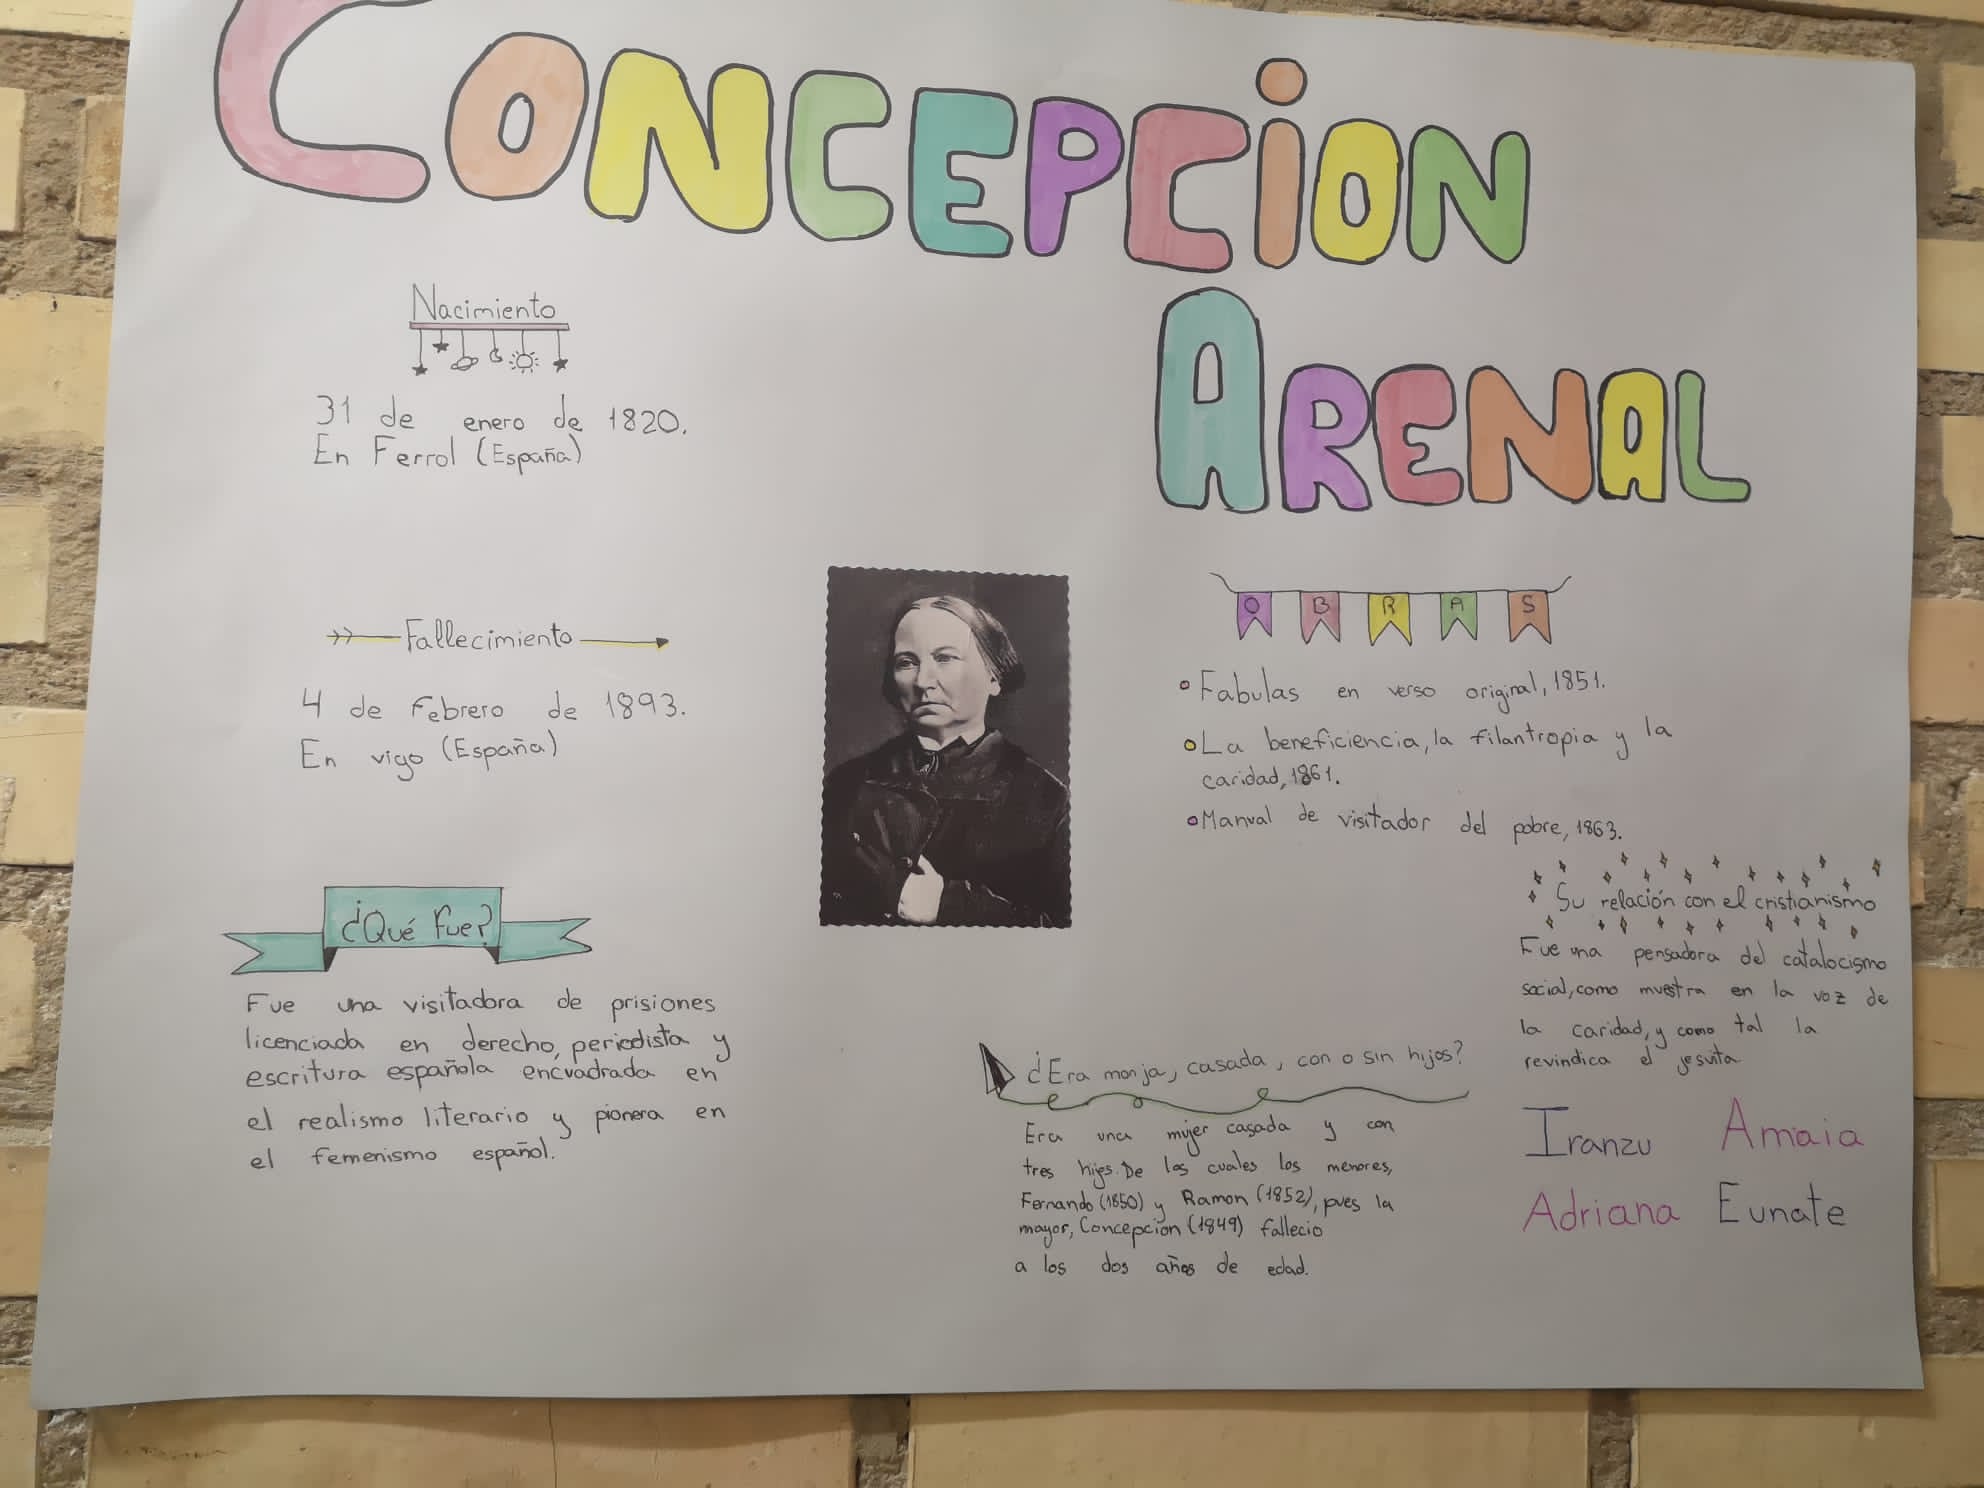 CONCEPCION
ARENAL
Nacimiento
31 de enero de 1820.
En Ferrol (España)
Fallecimiento
4 de Febrero de 1893.
En vigo (España)
¿Qué Fue?
Fue una visitadora de prisiones
licenciada en derecho, periodista y
escritura española encuadrada en
el realismo literario y pionera en
el femenismo español.
OBRAS
Fabulas en verso original, 1851.
La beneficiencia, la filantropia y la
caridad, 1861.
Manual de visitador del pobre, 1863.
Su relación con el cristianismo
Fue una pensadora del catalocismo
social, como muestra en la voz de
la caridad, y como tal la
revindica el jesuita
¿Era monja, casada, con o sin hijos?
Era una mujer casada y con
tres hijos. De los cuales los menores,
Fernando (1850) y Ramon (1852), pues la
mayor, Concepcion (1849) fallecio
a los dos años de edad.
Iranzu Amaia
Adriana Eunate